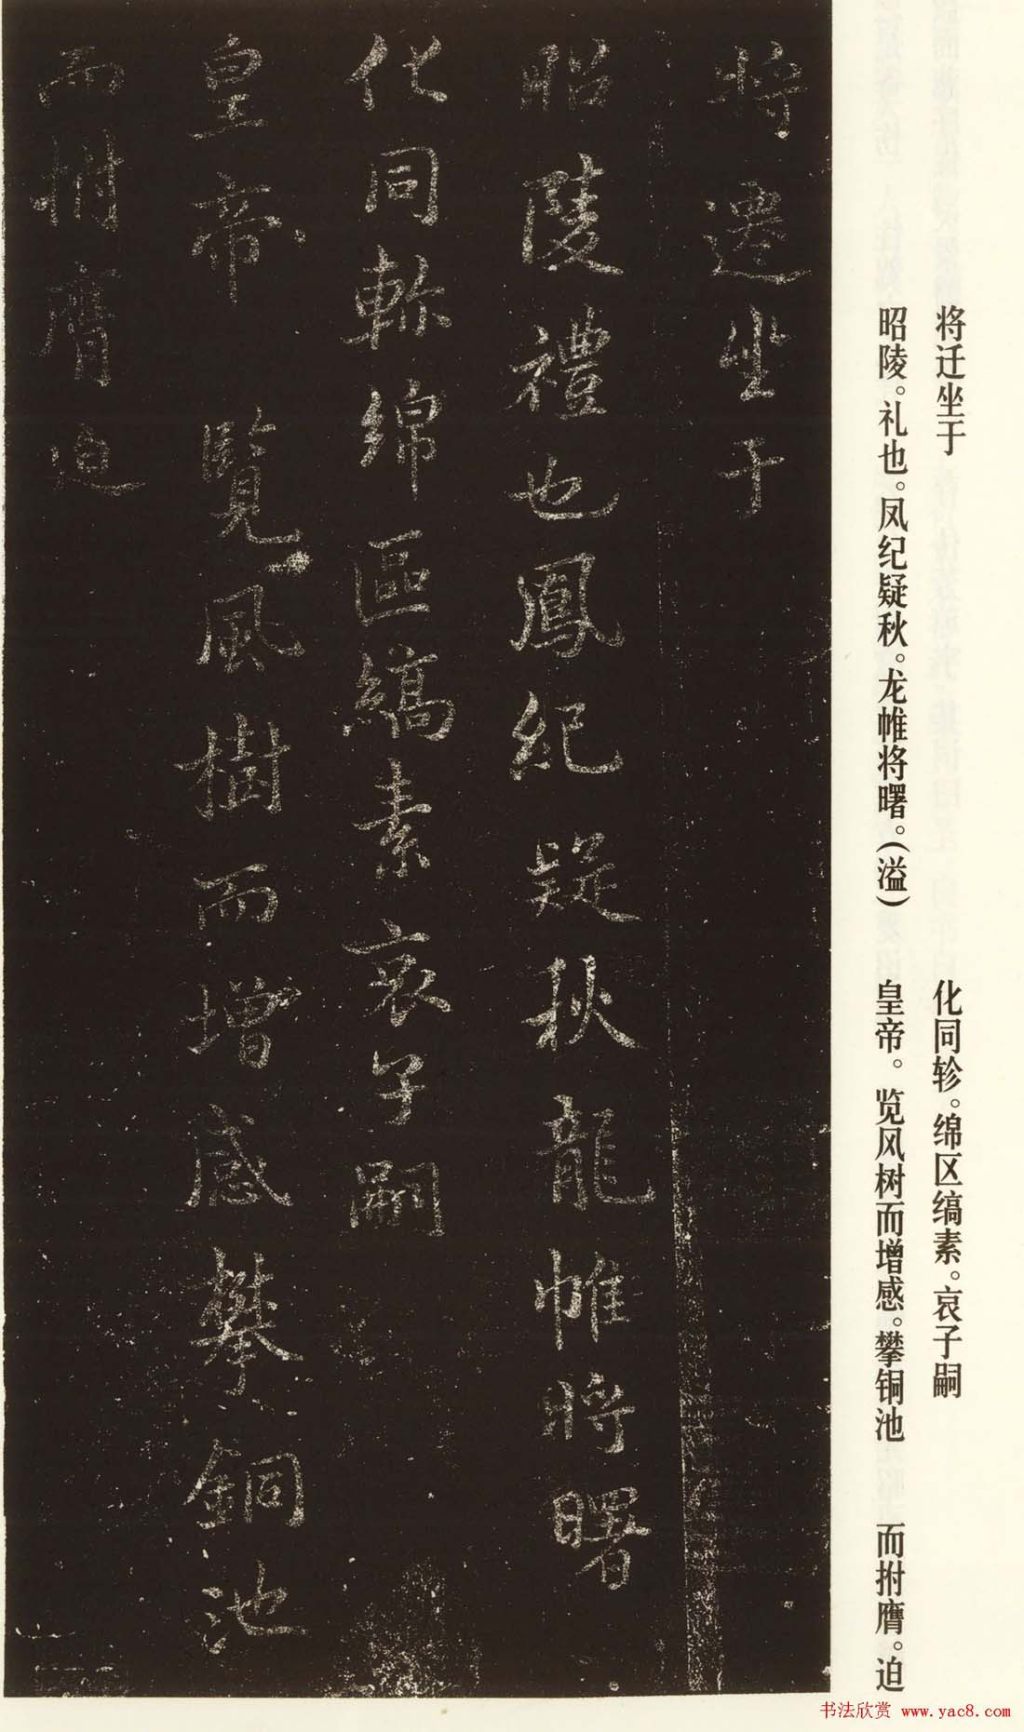 将迁坐于
昭陵。礼也。凤纪疑秋。龙帷将曙。(溢)
化同轸。绵区缟素。哀子嗣
皇帝。览风树而增感。攀铜池
而拊膺。迫
將遷坐于
昭陵禮也鳳紀疑秋龍帷將曙
化同軫綿區縞素哀子嗣
皇帝 覽風樹而增感攀銅池
而拊膺迫
书法欣赏 www.yac8.com